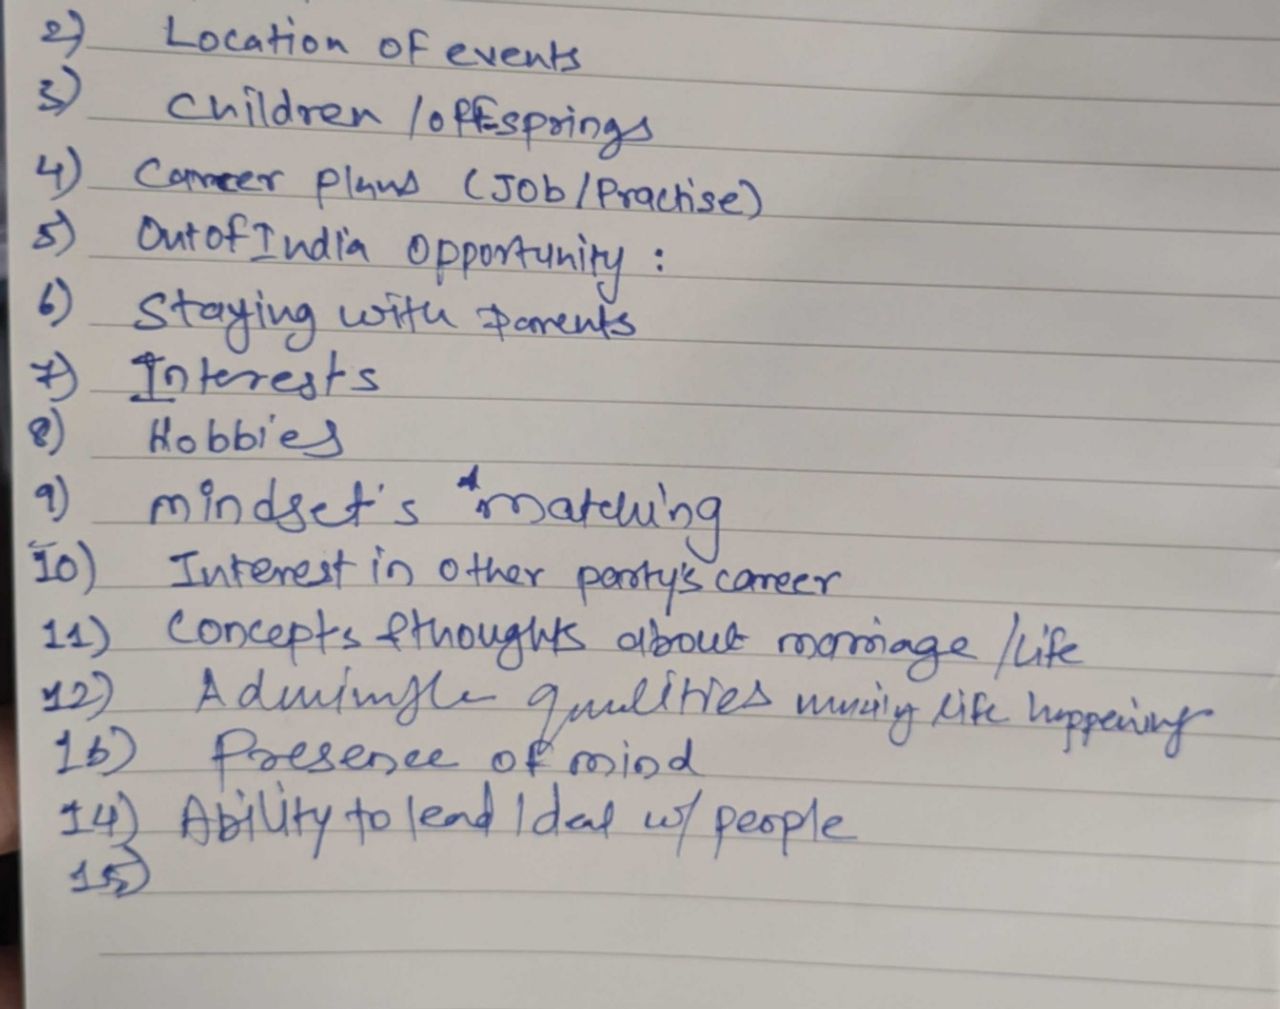 2) Location of events
3) Children / offsprings
4) Career plans (Job/Practise)
5) Out of India opportunity :
6) Staying with parents
7) Interests
8) Hobbies
9) mindset's matching
10) Interest in other party's career
11) Concepts & thoughts about marriage / life
12) qualities life happening
13) Presence of mind
14) Ability to lead / deal w/ people
15)